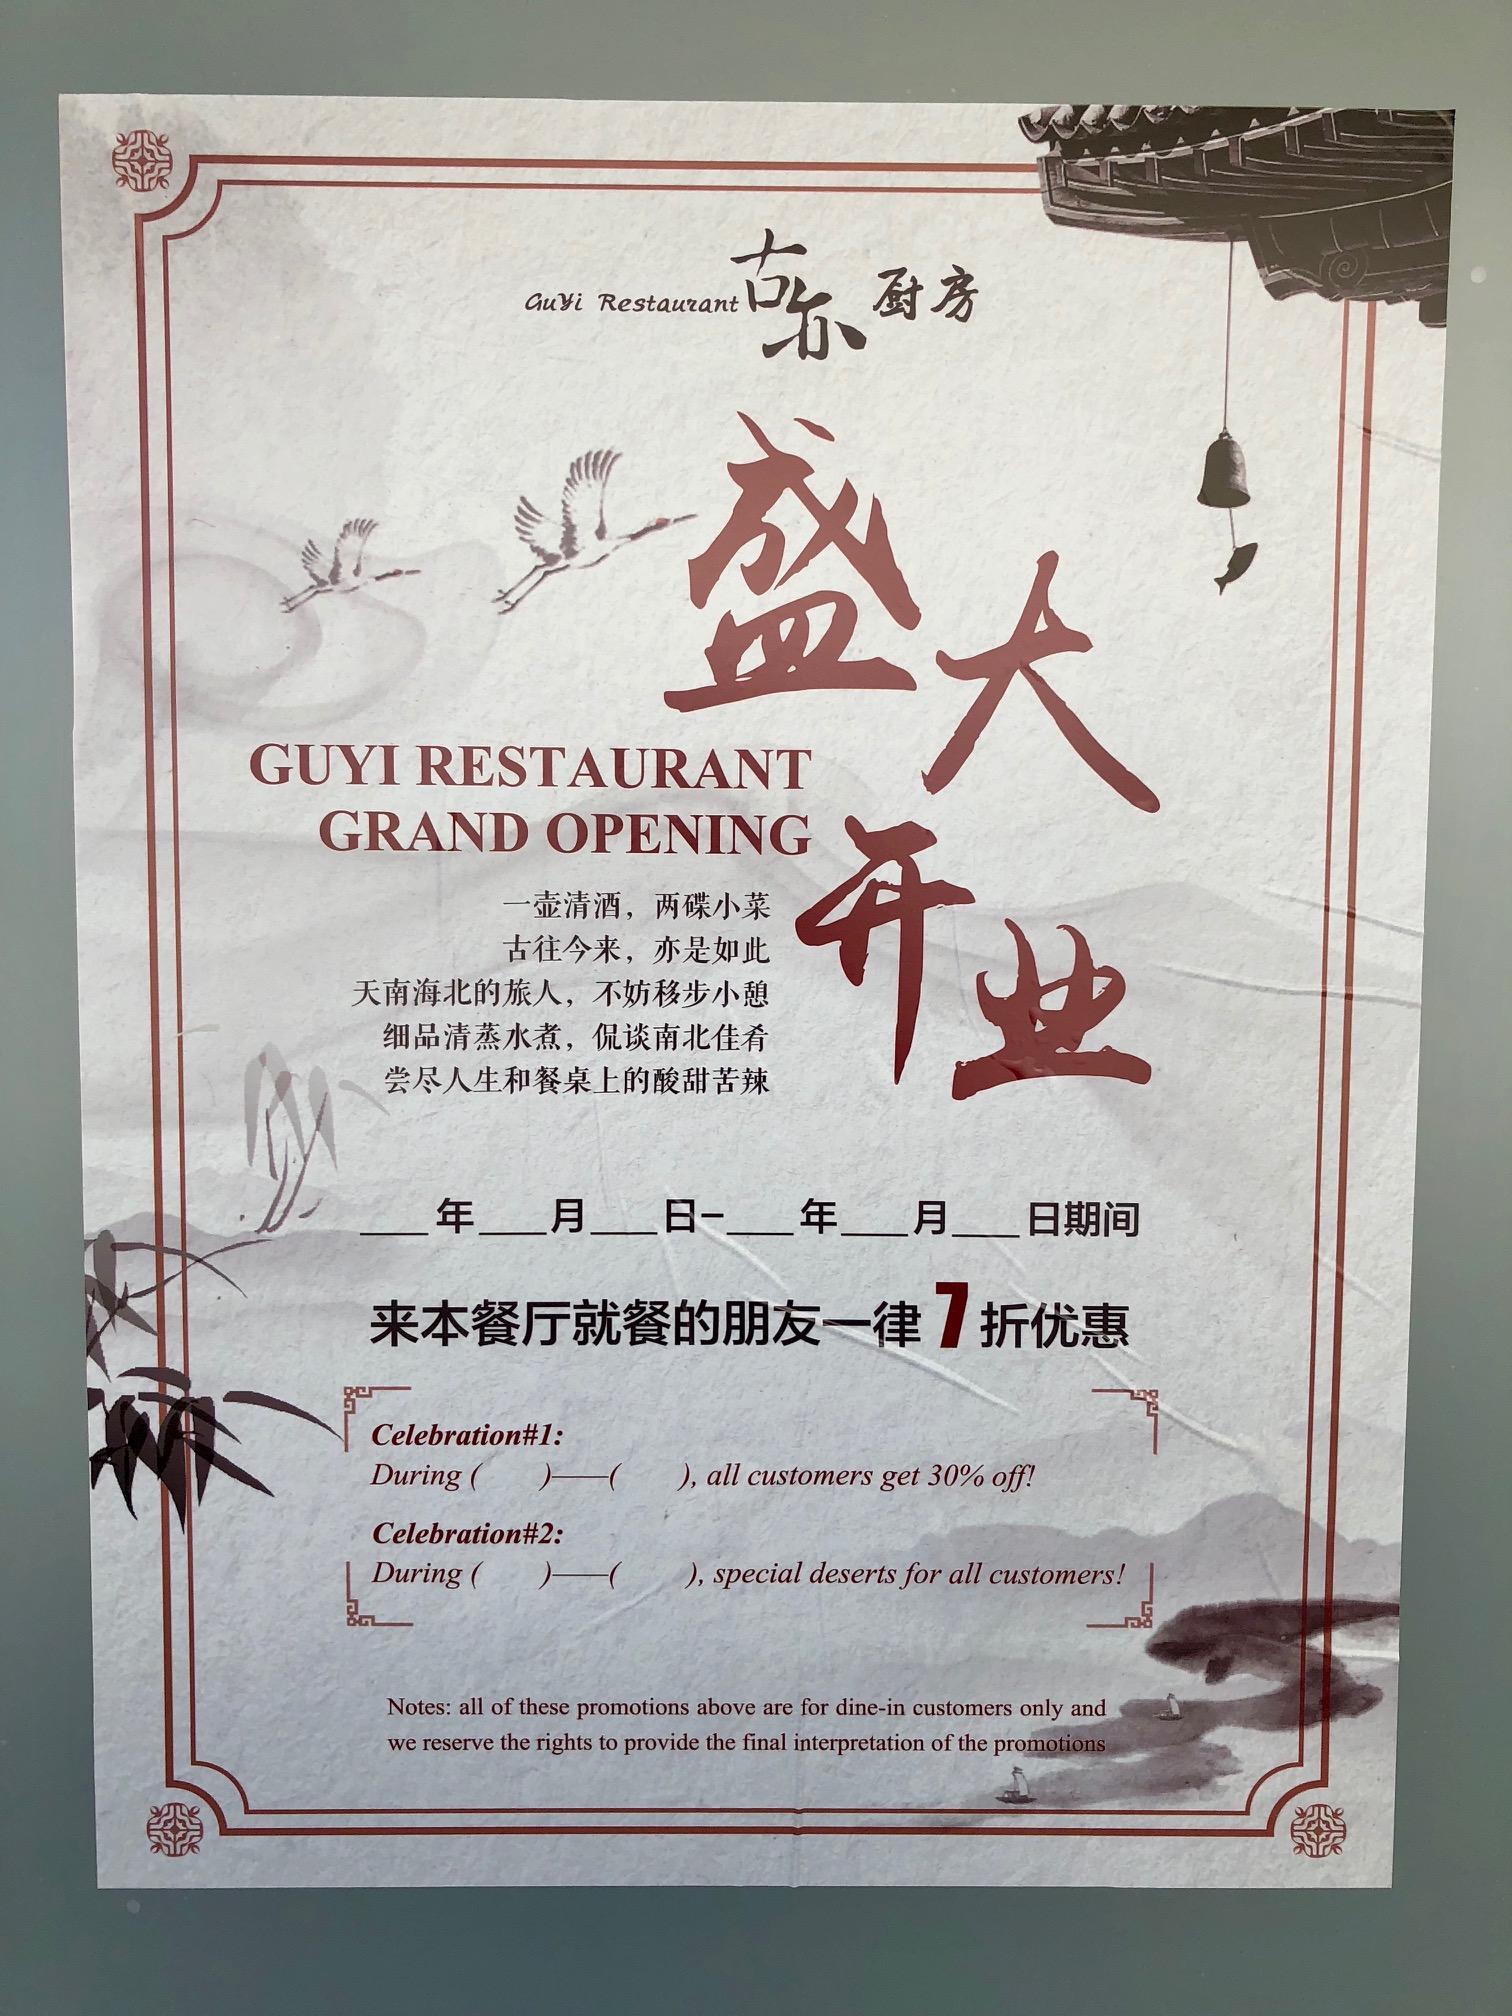 GuYi Restaurant古亦厨房
盛大
开业
GUYI RESTAURANT
GRAND OPENING
一壶清酒，两碟小菜
古往今来，亦是如此
天南海北的旅人，不妨移步小憩
细品清蒸水煮，侃谈南北佳肴
尝尽人生和餐桌上的酸甜苦辣
___年___月___日–___年___月___日期间
来本餐厅就餐的朋友一律7折优惠
Celebration#1:
During (        )——(        ), all customers get 30% off!
Celebration#2:
During (        )——(        ), special deserts for all customers!
Notes: all of these promotions above are for dine-in customers only and
we reserve the rights to provide the final interpretation of the promotions